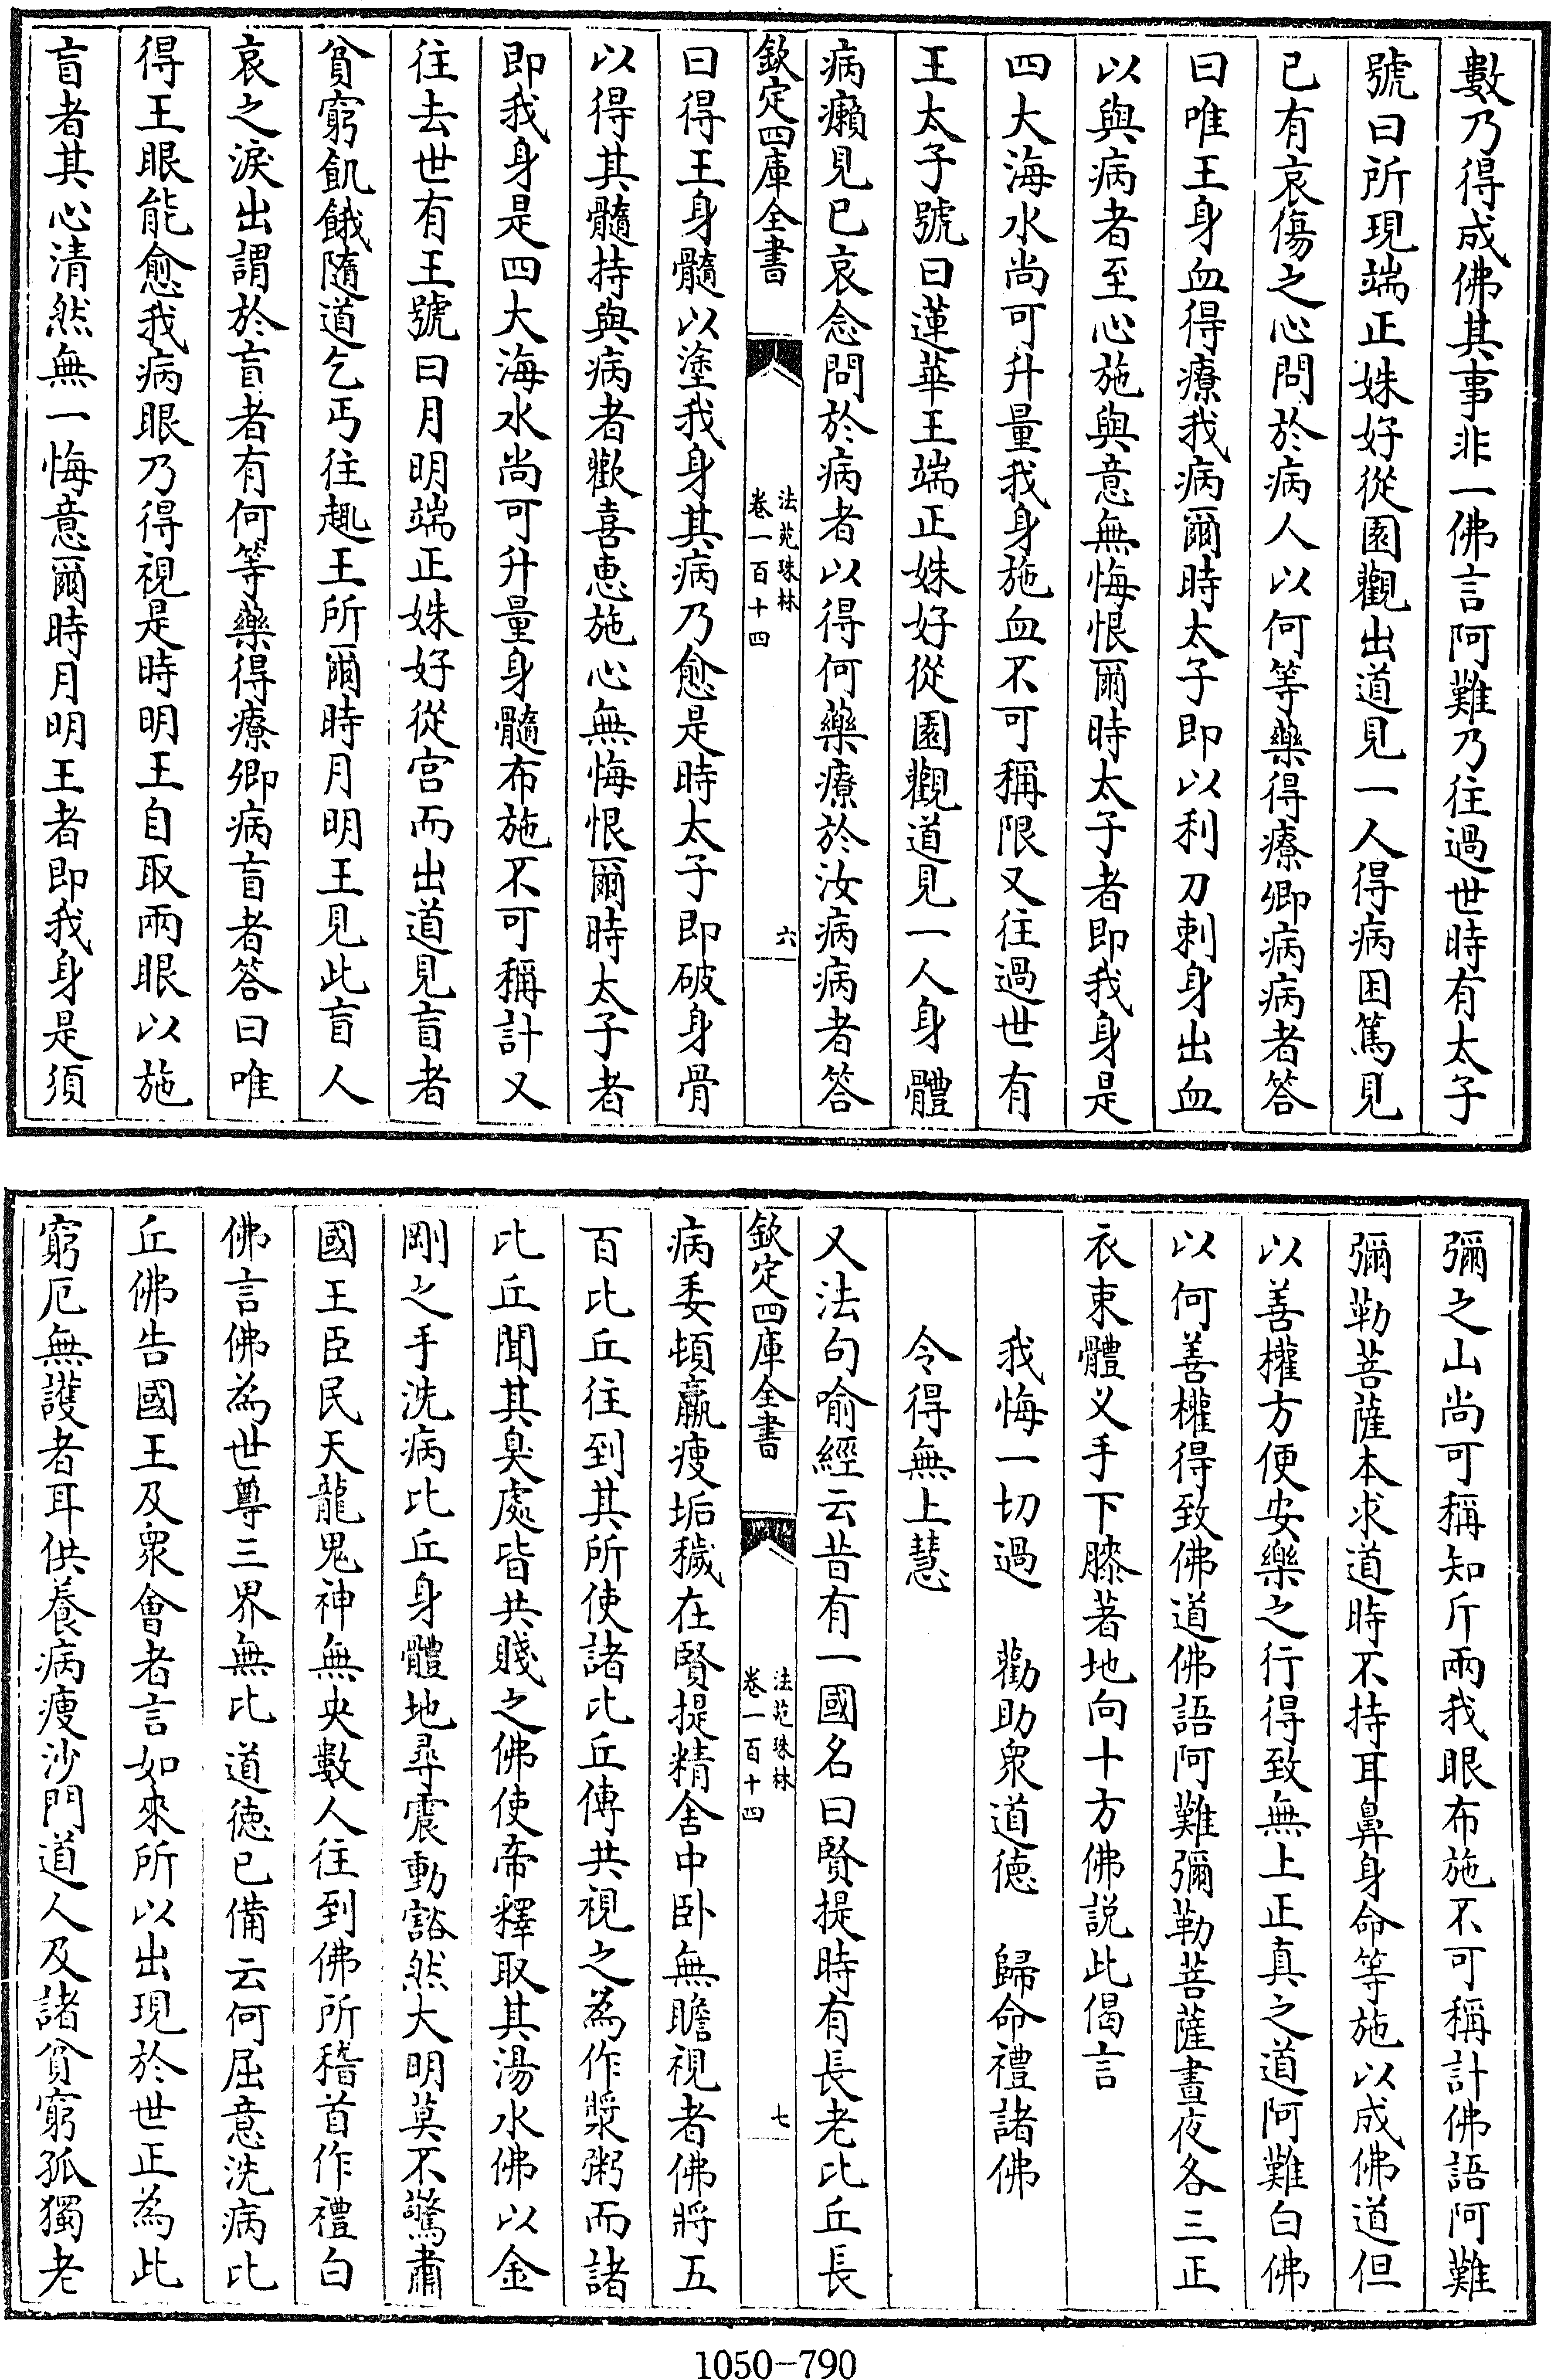 數乃得成佛其事非一佛言阿難乃往過世時有太子
號曰所現端正姝好從園觀出道見一人得病困篤見
已有哀傷之心問於病人以何等藥得療卿病病者答
曰唯王身血得療我病爾時太子即以利刀刺身出血
以與病者至心施與意無悔恨爾時太子者即我身是
四大海水尚可升量我身施血不可稱限又往過世有
王太子號曰蓮華王端正姝好從園觀道見一人身體
病癩見已哀念問於病者以得何藥療於汝病病者答
欽定四庫全書
法苑珠林
卷一百十四
六
曰得王身髓以塗我身其病乃愈是時太子即破身骨
以得其髓持與病者歡喜惠施心無悔恨爾時太子者
即我身是四大海水尚可升量身髓布施不可稱計又
往去世有王號曰月明端正姝好從宮而出道見盲者
貧窮飢餓隨道乞丐往趣王所爾時月明王見此盲人
哀之淚出謂於盲者有何等藥得療卿病盲者答曰唯
得王眼能愈我病眼乃得視是時明王自取兩眼以施
盲者其心清然無一悔意爾時月明王者即我身是須
彌之山尚可稱知斤兩我眼布施不可稱計佛語阿難
彌勒菩薩本求道時不持耳鼻身命等施以成佛道但
以善權方便安樂之行得致無上正真之道阿難白佛
以何善權得致佛道佛語阿難彌勒菩薩晝夜各三正
衣束體叉手下膝著地向十方佛說此偈言
我悔一切過　勸助衆道德　歸命禮諸佛
令得無上慧
又法句喻經云昔有一國名曰賢提時有長老比丘長
欽定四庫全書
法苑珠林
卷一百十四
七
病委頓羸瘦垢穢在賢提精舍中卧無瞻視者佛將五
百比丘往到其所使諸比丘傳共視之為作漿粥而諸
比丘聞其臭處皆共賤之佛使帝釋取其湯水佛以金
剛之手洗病比丘身體地尋震動豁然大明莫不驚肅
國王臣民天龍鬼神無央數人往到佛所稽首作禮白
佛言佛為世尊三界無比道德已備云何屈意洗病比
丘佛告國王及衆會者言如來所以出現於世正為此
窮厄無護者耳供養病瘦沙門道人及諸貧窮孤獨老
1050-790